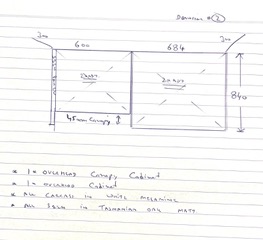 300 300
600 684
840
45mm Canopy
* 1x OVERHEAD Canopy Cabinet
* 1x OVERHEAD Cabinet
* ALL CARCASS IN WHITE MELAMINE
* ALL IN TASMANIAN OAK MATT.